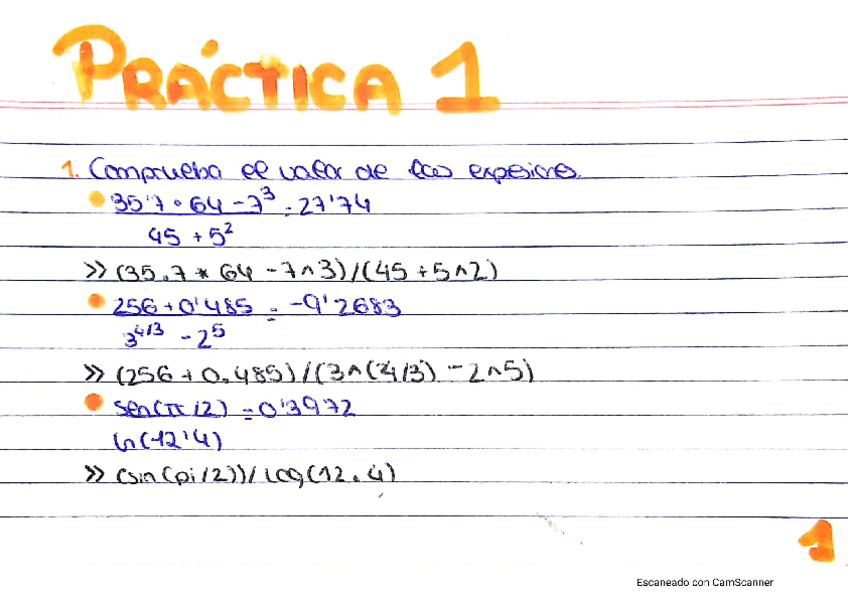 PRÁCTICA 1
1. Comprueba el valor de las expesiones.
35'7 · 64 - 7³ = 27'74
45 + 5²
>> (35.7 * 64 - 7^3)/(45 + 5^2)
256 + 0'485 = -9'2683
3^4/3 - 2⁵
>> (256 + 0.485)/(3^(4/3) - 2^5)
sen(π/2) = 0'3972
ln(12'4)
>> (sin(pi/2))/log(12.4)
1
Escaneado con CamScanner